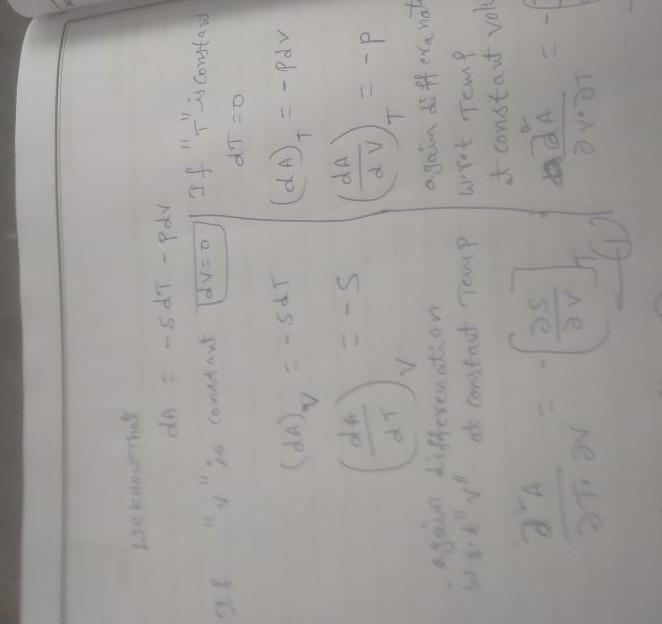 We know that
dA = -SdT - PdV
If "V" is constant dV=0
(dA)_V = -SdT
(dA/dT)_V = -S
again differenation
w.r.t "V" at constant Temp
∂²A/∂T·∂V = -[∂S/∂V]_T
(1)
If "T" is constant
dT=0
(dA)_T = -PdV
(dA/dV)_T = -P
again differenat
w.r.t Temp
at constant volu
∂²A/∂V·∂T = -